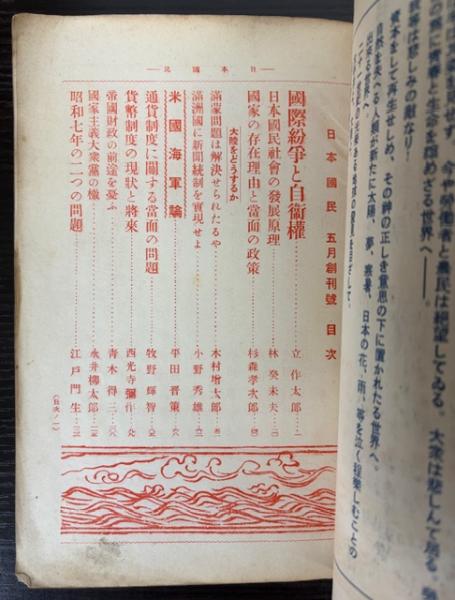 日本國民
日本國民 五月創刊號 目次
國際紛爭と自衞權 立作太郎
日本國民社會の發展原理 林癸未夫
國家の存在理由と當面の政策 杉森孝次郎
大陸をどうするか
滿蒙問題は解決せられたるや 木村增太郎
滿洲國に新聞統制を實現せよ 小野秀雄
米國海軍論 平田晋策
通貨制度に關する當面の問題 牧野輝智
貨幣制度の現狀と將來 西光寺彌作
帝國財政の前途を憂ふ 青木得三
國家主義大衆黨の檢 永井柳太郎
昭和七年の二つの問題 江戸門生
(目次ノ一)
今や勞働者と農民は絕望してゐる。大衆は悲しんで居る。
の爲に靑春と生命を認めざる世界へ――。
等は悲しみの敵なり!
資本をして再生せしめ、その神の正しき意思の下に置かれたる世界へ。
自然を失へる人類が新たに太陽、夢、寒暑、日本の花、雨、等を泣く程樂しむことの
出來る世界へ。